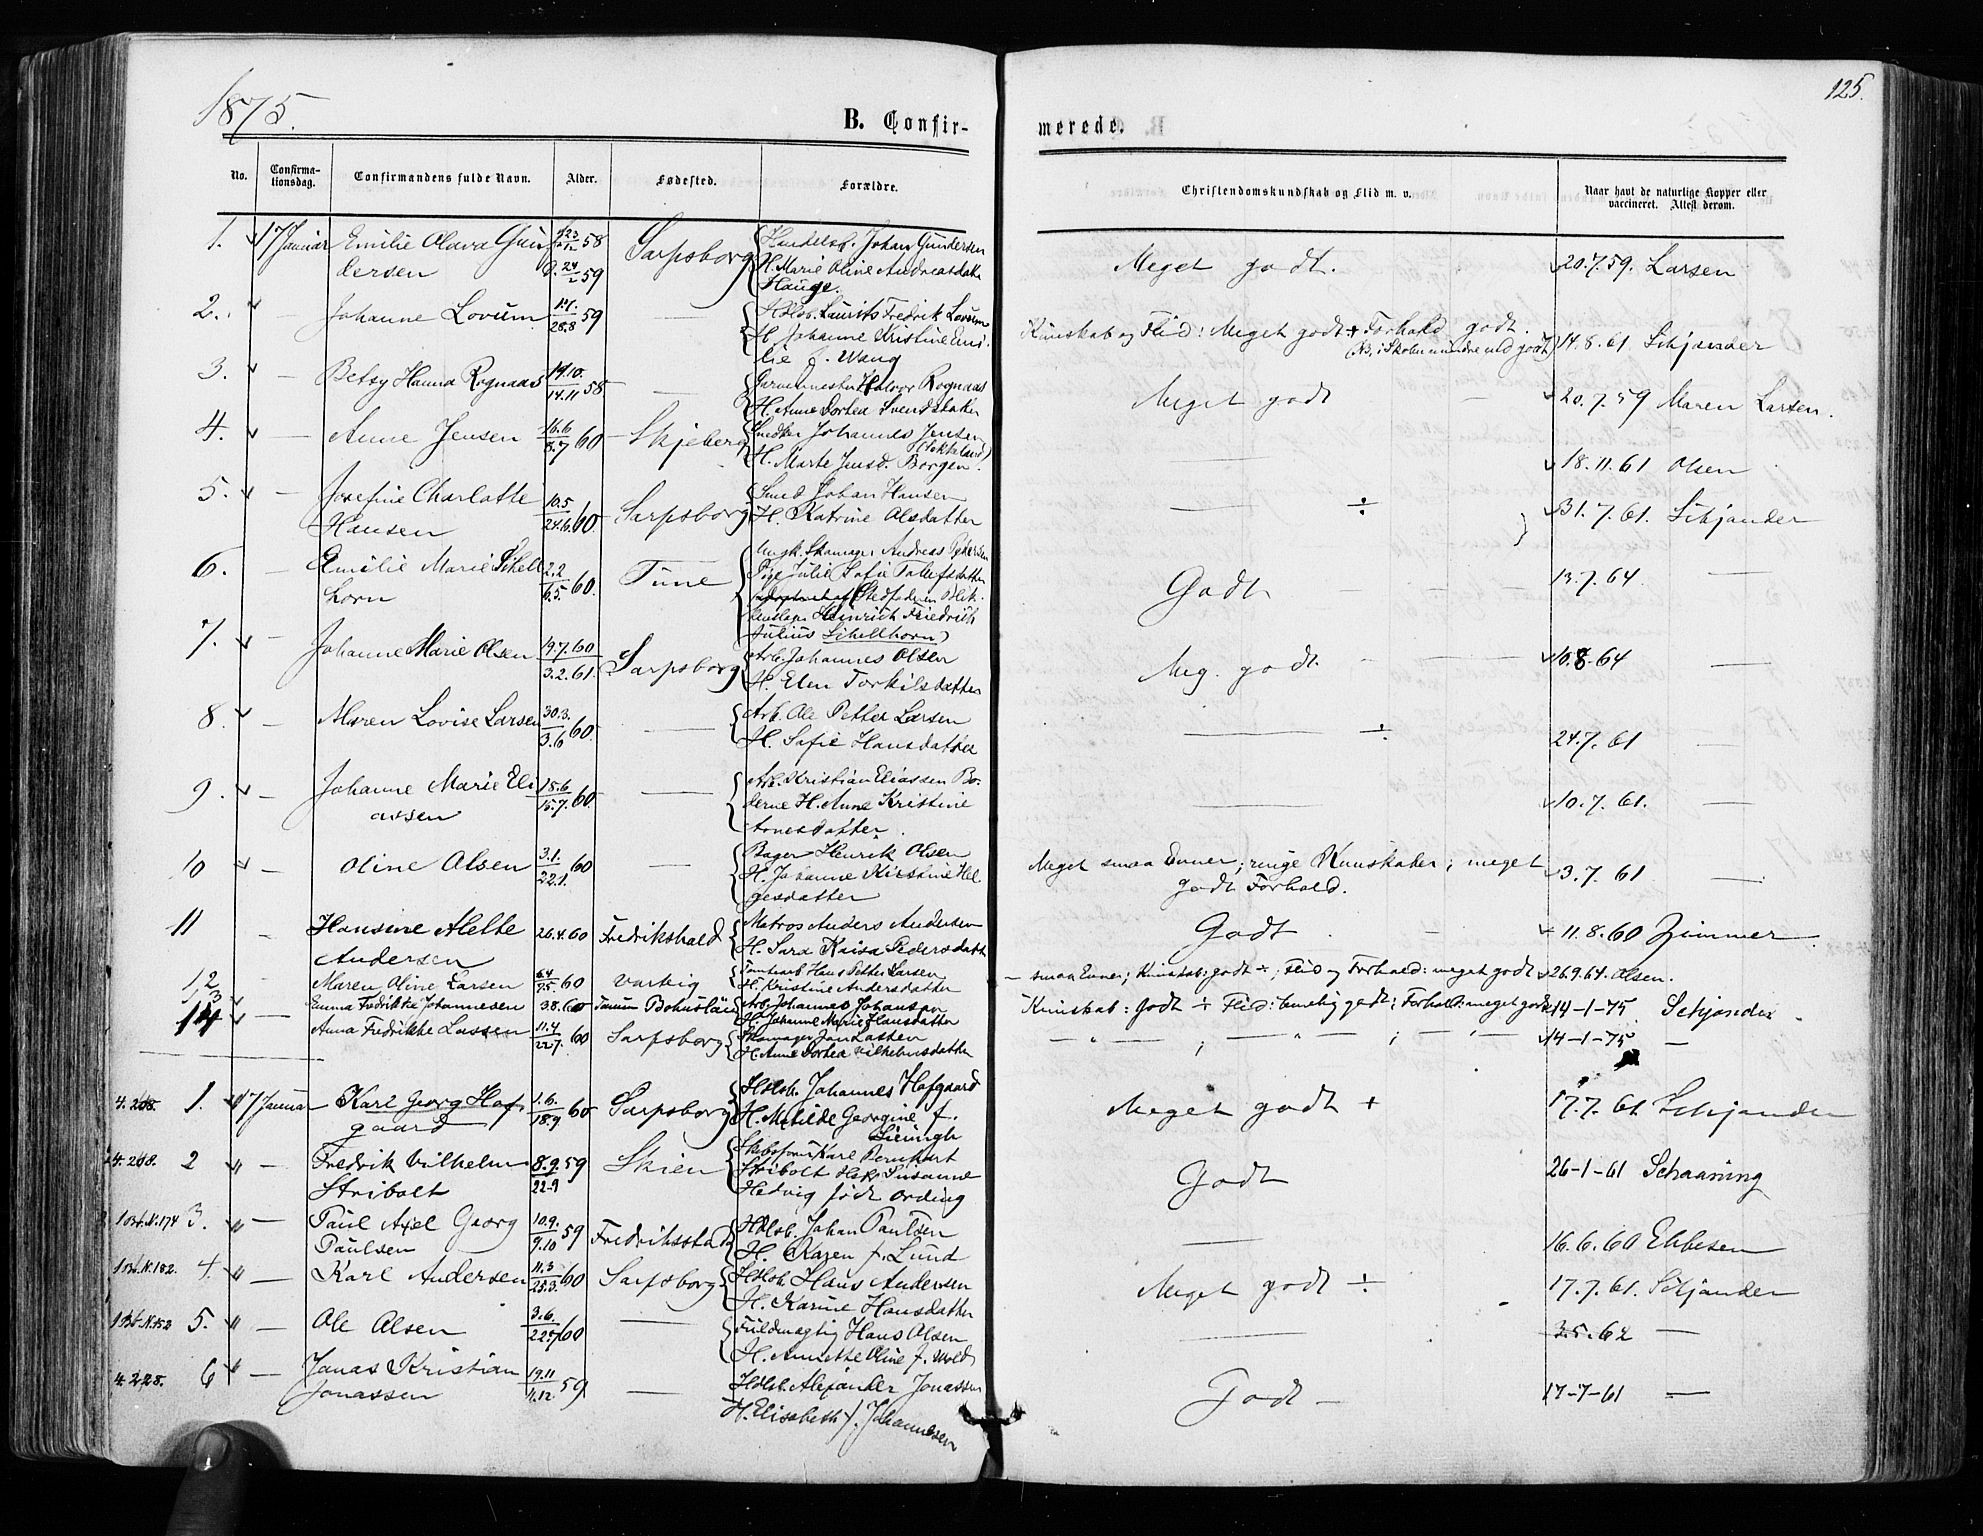 1875.
125.
B. Confir-
merede.
No.
Confirma-
tionsdag.
Confirmandens fulde Navn.
Alder.
Fødested.
Forældre.
Christendomskundskab og Flid m. v.
Naar havt de naturlige Kopper eller
vaccineret. Attest derom.
1. 17 Januar Emilie Olava Gun
dersen
23/12 58
d. 24/2 59
Sarpsborg
Handelsb. Johan Gundersen
H. Marie Oline Andreasdatter
Hauge.
Meget godt.
20.7.59. Larsen
2. — Johanne Lovum
28.8 59
—
Hdlsb. Laurits Fredrik Lovum
H. Johanne Kristine Emi-
lie f. Wang
Kunskab og Flid: Meget godt + Forhold godt.
(NB. i Skolen mindre end godt)
14.8.61 Schjander
3. — Betsy Hanna Rognaas
19.10.
14.11 58
—
Garvermester Halvor Rognaas
H. Anne Dorthea Svendsdatter
Meget godt —
20.7.59 Maren Larsen.
4. — Anne Jensen
16.6
8.7 60
Skjeberg
Snedker Johannes Jensen
H. Marte Jensd. Borgen.
—
18.11.61 Olsen
5. — Josefine Charlotte
Hansen
10.5
24.6. 60
Sarpsborg
Smed Johan Hansen
H. Katrine Olsdatter
— ÷
31.7.61. Schjander
6. — Emilie Marie Schell
horn
2.2
6.5. 60.
Tune
Ungk. Skomager Andreas Petersen
Pige Julie Sofie Tolefsdatter
(Stedfaderen Blik-
kenslager Heinrich Friedrich
Julius Schellhorn)
Godt
13.7.64. —
7. — Johanne Marie Olsen
19.7.60
3.2.61
Sarpsborg
Arb. Johannes Olsen
H. Elen Torkilsdatter
Meg. godt
10.8.64 —
8. — Maren Lovise Larsen
30.3.
3.6 60.
—
Arb. Ole Petter Larsen
H. Sofie Hansdatter
— ÷
24.7.61 —
9. — Johanne Marie Eli
assen
18.6
15.7. 60
—
Arb. Kristian Eliassen Bo-
derne H. Anne Kristine
Arnesdatter.
—
10.7.61. —
10 — Oline Olsen
3.1.
22.1. 60
—
Bager Henrik Olsen
H. Johanne Kirstine Hel
gesdatter
Meget smaa Evner; ringe Kunskaber; meget
godt Forhold.
3.7.61 —
11 — Hansine Alette
Andersen
26.4.60
Fredrikshald
Matros Anders Andersen
H. Sara Kaisa Pedersdatt
Godt. —
11.8.60 Zimmer.
12 Maren Oline Larsen
6.4
9.5 60
Varteig
Tomtearb. Hans Petter Larsen
H. Kristine Andersdatter
– smaa Evner; Kunskab: godt ÷; Flid og Forhold: meget godt
26.9.64. Olsen.
13 — Emma Fredrikke Johannesen
3.8.60
Tanum Bohuslän
Arb. Johannes Johansen
H. Johanne Marie Hansdatter
Kunskab: godt ÷ Flid: temelig godt; Forhold: meget godt
14-1-75 Schjander
14 Anna Fredrikke Lassen
11.4
22.7. 60
Sarpsborg
Skomager Jan Lassen
H. Anne Dorthea Vilhelmsdatter
— " — ; — " — ; — " —
14-1-75 —
4.208. 1. 17 Januar Karl Georg Haf-
gaard
1.6.
18.9 60
Sarpsborg
Hdlsb. Johannes Hafgaard
H. Matilde Georgine f.
Meget godt +
17.7.61 Schjander
4.208. 2 " — Fredrik Vilhelm
Stribolt
8.9.59
22-9
Skien
Skibsfører Karl Bernhart
Stribolt H. Susanne
Hedvig født Ording
Godt
26-1-61 Schaaning
1 Bt. N. 174 3. " — Paul Axel Georg
Paulsen
10.9.
9.10 59
Fredriksstad
Hdlsb. Johan Paulsen
H. Karen f. Lund
—
16.6.60 Ebbesen
1 Bt. N. 182. 4. " — Karl Andersen
11.3
25.3. 60
Sarpsborg
Hdlsb. Hans Andersen
H. Karine Hansdatter
Meget godt ÷
17.7.61. Schjander
1 Bt. N. 152 5. " — Ole Olsen
3.6.
22.7 60
—
Fuldmægtig Hans Olsen
H. Annette Oline f. Wold
—
3.5.62 —
4.228. 6 " — Jonas Kristian
Jonassen
19.11
11.12 59
—
Hdlsb. Alexander Jonassen
H. Elisabeth f. Johannesen
Godt —
17-7-61 —